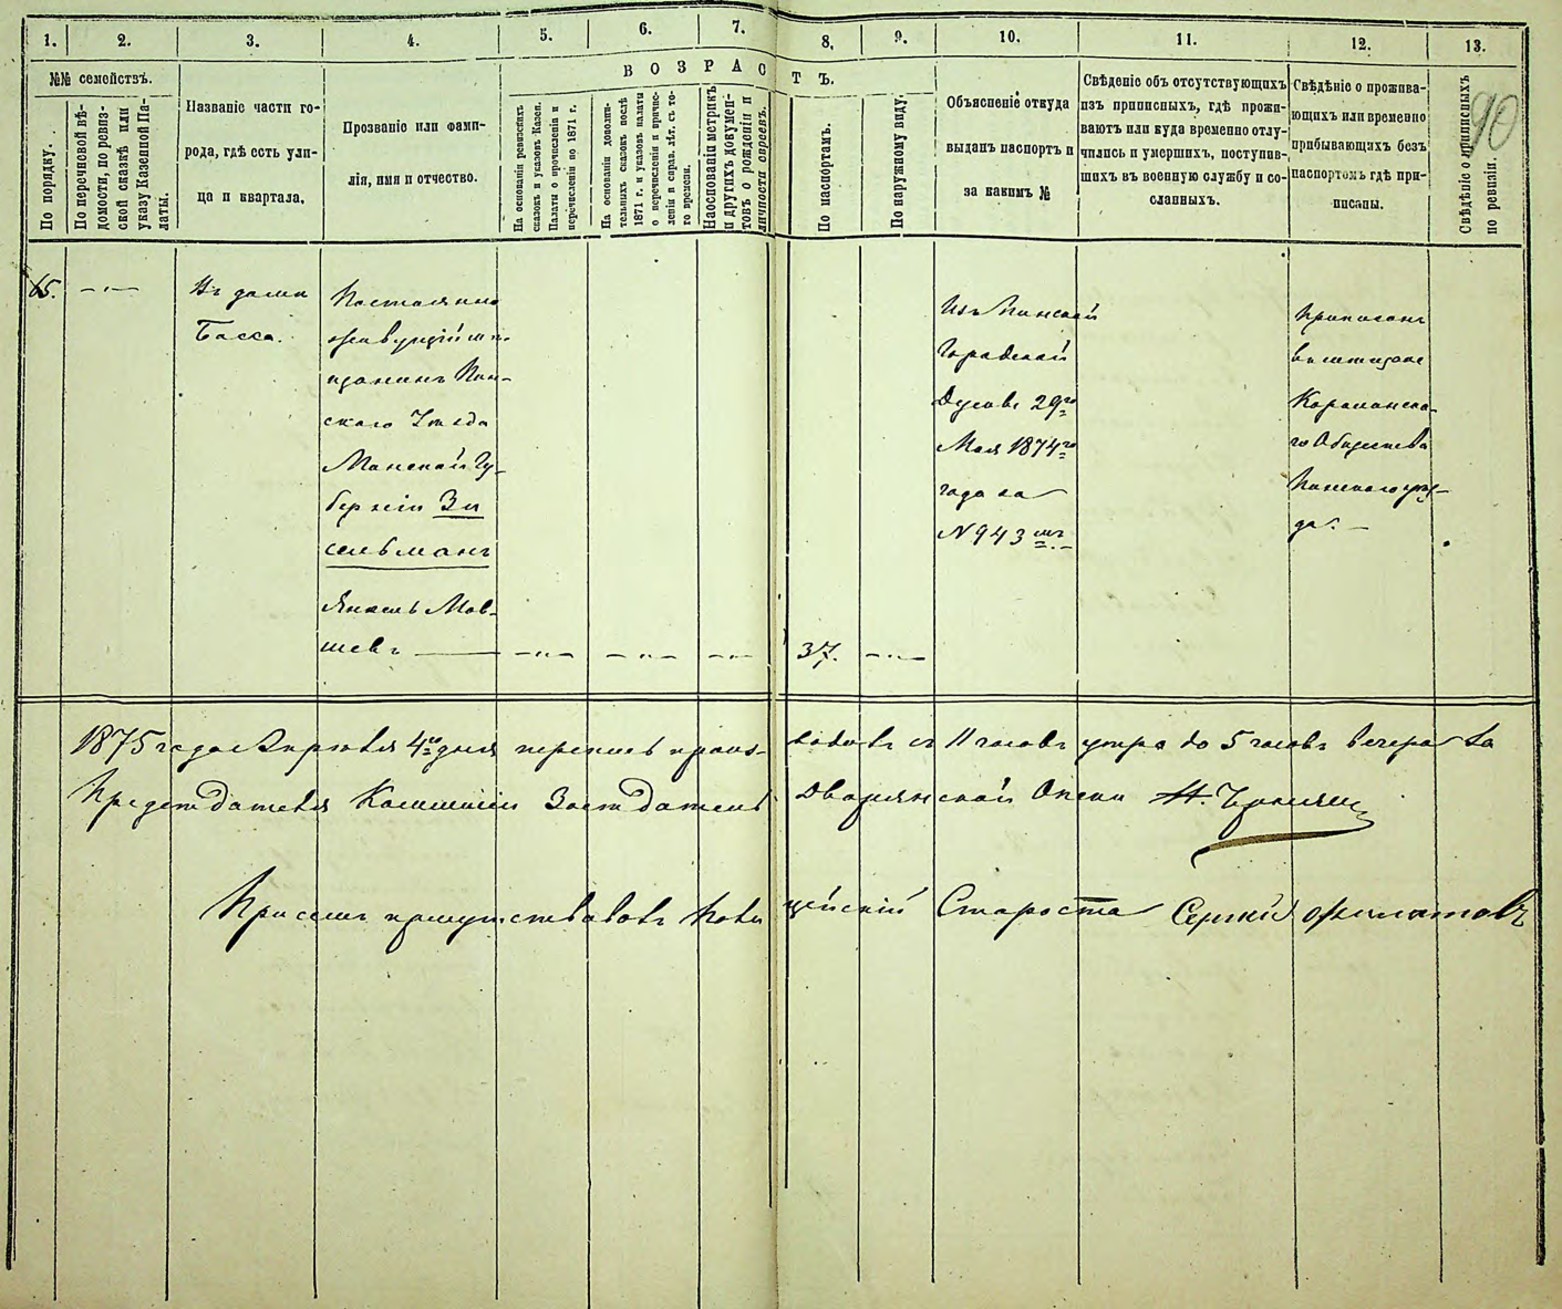 1. 2. 3. 4. 5. 6. 7. 8. 9. 10. 11. 12. 13.
90
№№ семействъ.
По порядку.
По перечневой вѣ-
домости, по ревиз-
ской сказкѣ или
указу Казенной Па-
латы.
Названіе части го-
рода, гдѣ есть ули-
ца и квартала.
Прозваніе или фами-
лія, имя и отчество.
ВОЗРАСТЪ.
На основаніи ревизскихъ
сказокъ и указовъ Казен.
Палаты о причисленіи и
перечисленіи по 1871 г.
На основаніи дополни-
тельныхъ сказокъ послѣ
1871 г. и указовъ палаты
о перечисленіи и причис-
леніи и справ. лѣт. съ то-
го времени.
Наоснованіи метрикъ
и другихъ докумен-
товъ о рожденіи и
личности евреевъ.
По паспортамъ.
По наружному виду.
Объясненіе откуда
выданъ паспортъ и
за какимъ №
Свѣденіе объ отсутствующихъ
изъ приписныхъ, гдѣ прожи-
ваютъ или куда временно отлу-
чились и умершихъ, поступив-
шихъ въ военную службу и со-
сланныхъ.
Свѣдѣніе о прожива-
ющихъ или временно
прибывающихъ безъ
паспортомъ гдѣ при-
писаны.
Свѣдѣніе о приписныхъ
по ревизіи.
65.
Въ домѣ
Басса.
Постоянно
проживущій мѣ-
щанинъ Пин-
скаго Уѣзда
Минской Гу-
берніи Зи
сельманъ
Янкель Мов-
шевъ
37.
Изъ Пинской
Городской
Думы 29го
Мая 1874го
года за
№ 943мъ
Приписанъ
въ мѣщане
го Общества
Пинскаго уѣз-
да.
1875 года Апрѣля 4го дня перепись произ-водилъ съ 11 часовъ утра до 5 часовъ вечера За
Предсѣдателя Коммисіи Засѣдатель Дворянской Опеки
При семъ присутствовалъ Полицейскій Староста Сергѣй Филатовъ